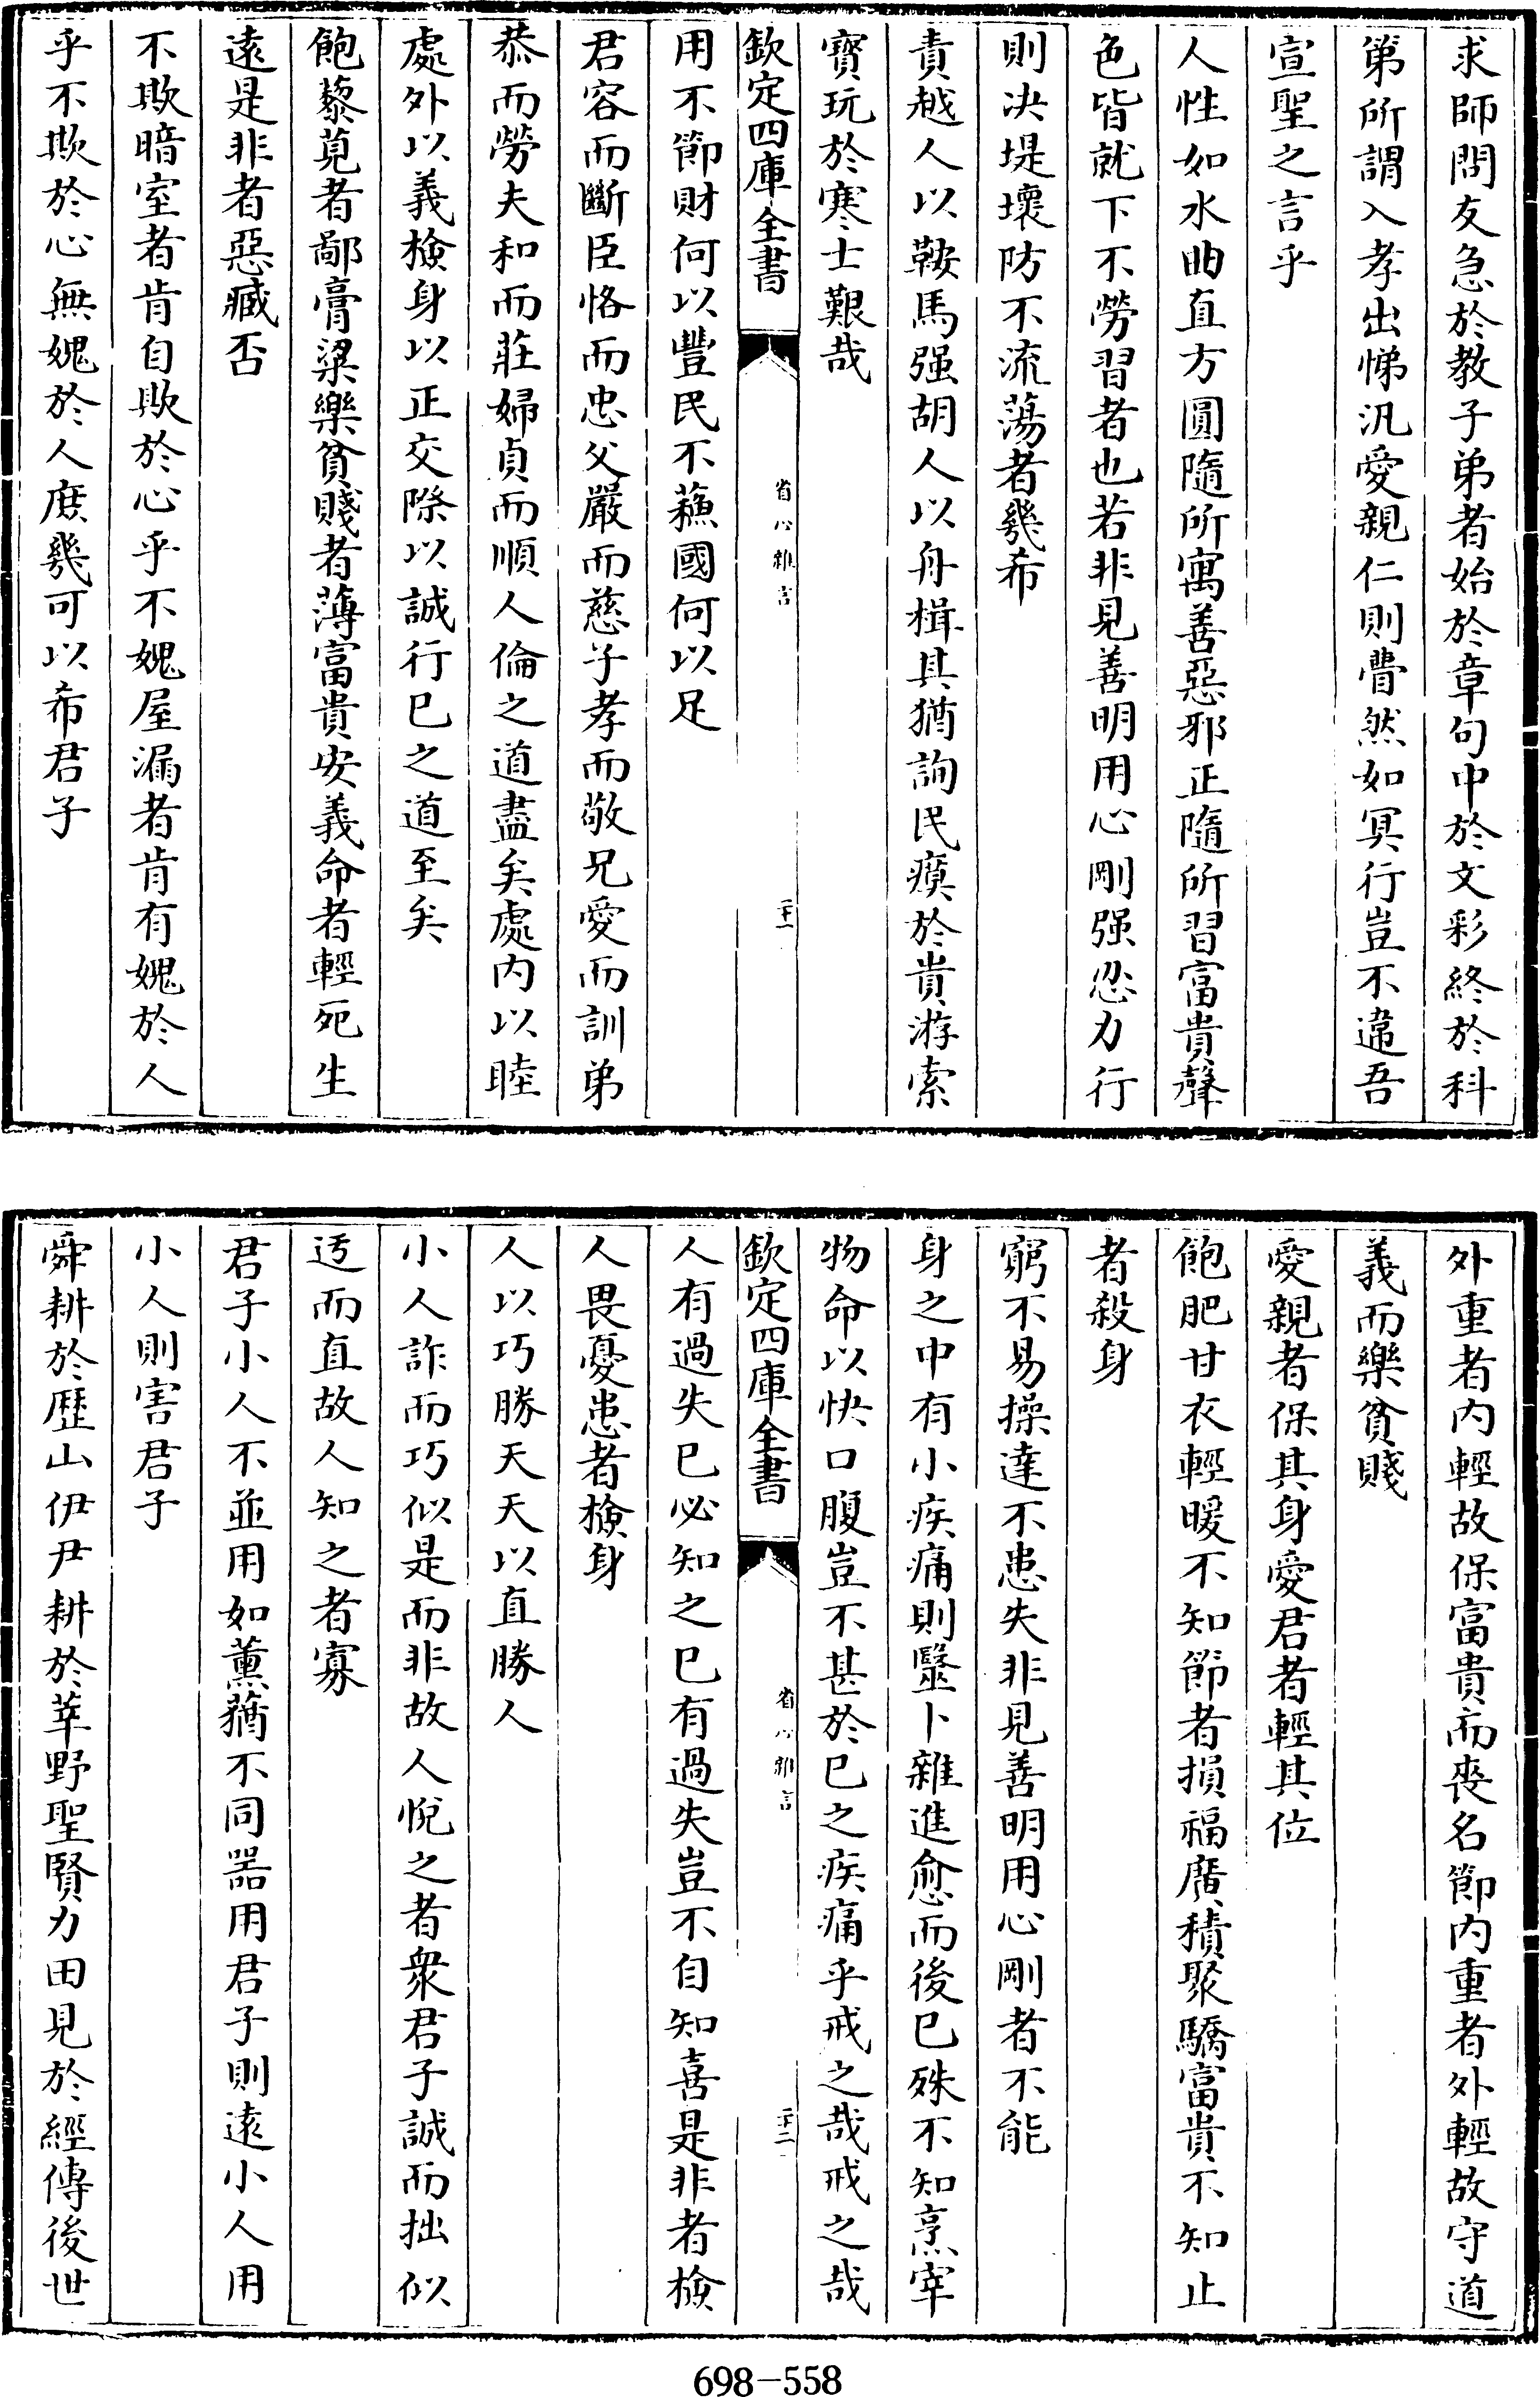 求師問友急於教子弟者始於章句中於文彩終於科
第所謂入孝出悌汎愛親仁則瞢然如冥行豈不違吾
宣聖之言乎
人性如水曲直方圓隨所寓善惡邪正隨所習富貴聲
色皆就下不勞習者也若非見善明用心剛强忍力行
則决堤壞防不流蕩者幾希
責越人以鞍馬强胡人以舟楫其猶詢民瘼於貴游索
寶玩於寒士艱哉
欽定四庫全書
省心雜言
二十一
用不節財何以豐民不蘓國何以足
君容而斷臣恪而忠父嚴而慈子孝而敬兄愛而訓弟
恭而勞夫和而莊婦貞而順人倫之道盡矣處内以睦
處外以義檢身以正交際以誠行已之道至矣
飽藜莧者鄙膏粱樂貧賤者薄富貴安義命者輕死生
遠是非者惡臧否
不欺暗室者肯自欺於心乎不媿屋漏者肯有媿於人
乎不欺於心無媿於人庶幾可以希君子
外重者内輕故保富貴而喪名節内重者外輕故守道
義而樂貧賤
愛親者保其身愛君者輕其位
飽肥甘衣輕暖不知節者損福廣積聚驕富貴不知止
者殺身
窮不易操達不患失非見善明用心剛者不能
身之中有小疾痛則毉卜雜進愈而後已殊不知烹宰
物命以快口腹豈不甚於已之疾痛乎戒之哉戒之哉
欽定四庫全書
省心雜言
二十二
人有過失已必知之已有過失豈不自知喜是非者檢
人畏憂患者檢身
人以巧勝天天以直勝人
小人詐而巧似是而非故人悅之者衆君子誠而拙似
迂而直故人知之者寡
君子小人不並用如薰蕕不同器用君子則遠小人用
小人則害君子
舜耕於歷山伊尹耕於莘野聖賢力田見於經傳後世
698-558